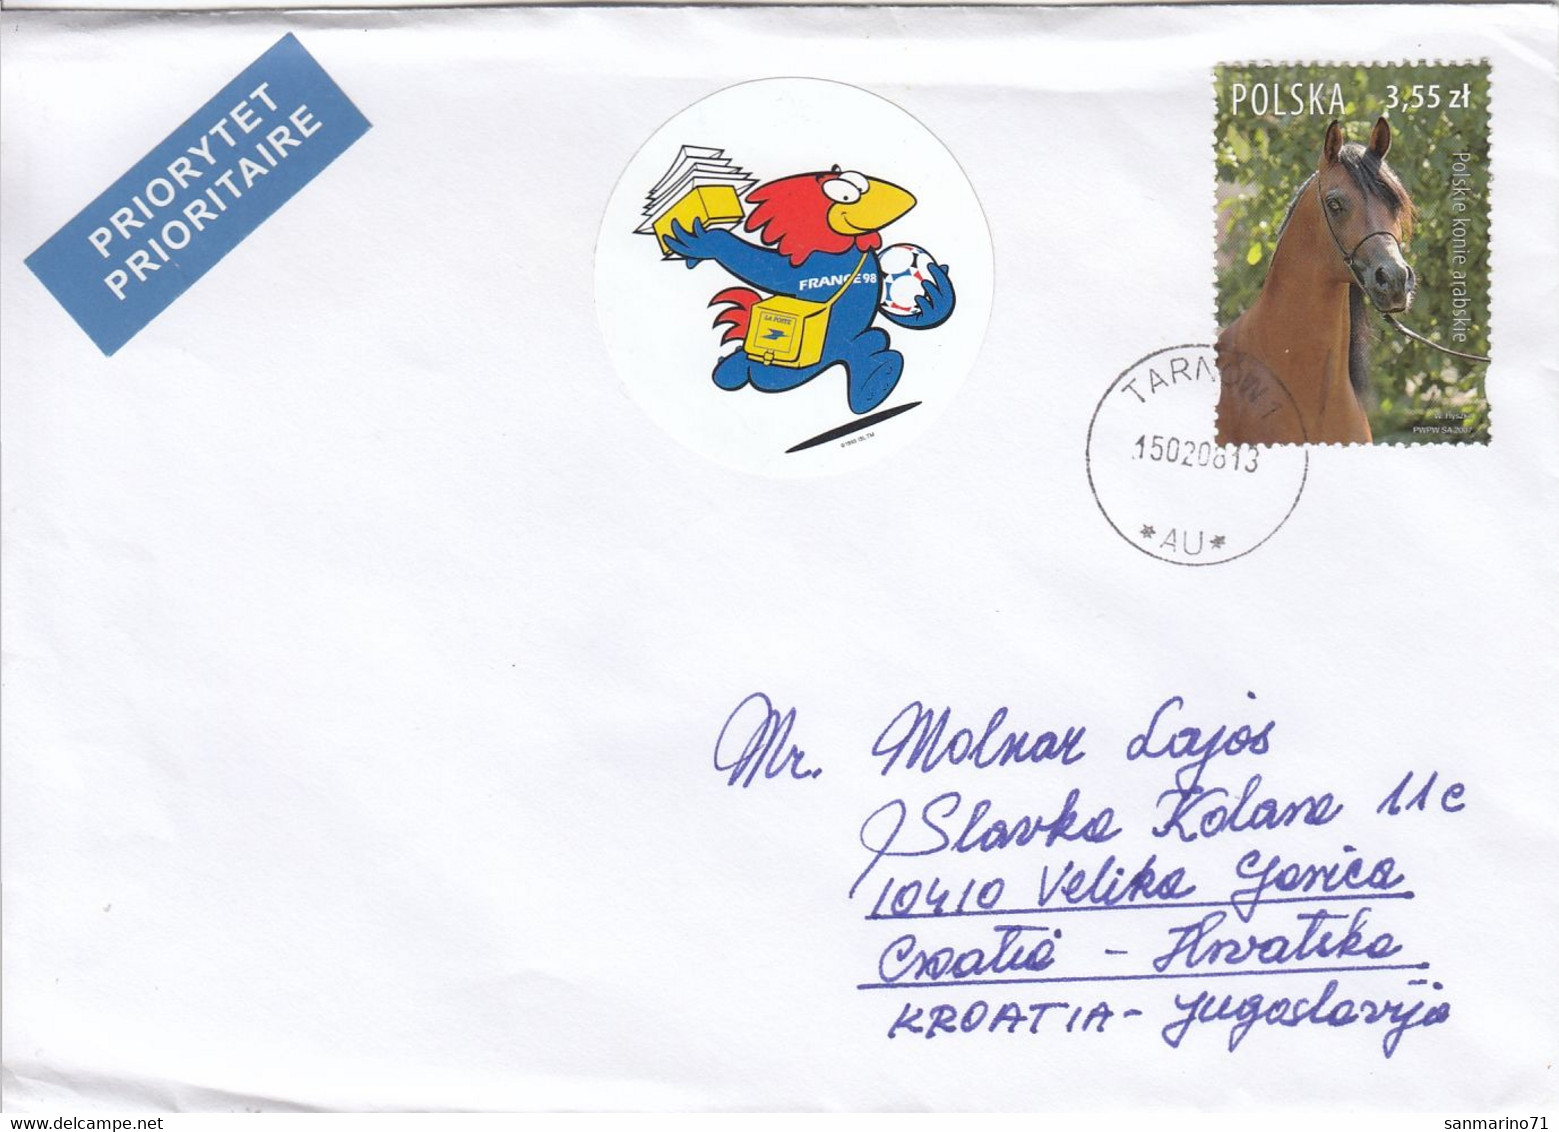 PRIORYTET
PRIORITAIRE
FRANCE 98
LA POSTE
POLSKA 3,55 zł
Polskie konie arabskie
PWPW SA 2007
TARNÓW 1
15020813
*AU*
Mr. Molnar Lajos
Slavka Kolara 11c
10410 Velika Gorica
Croatia - Hrvatska
KROATIA - Jugoslavija
sanmarino71